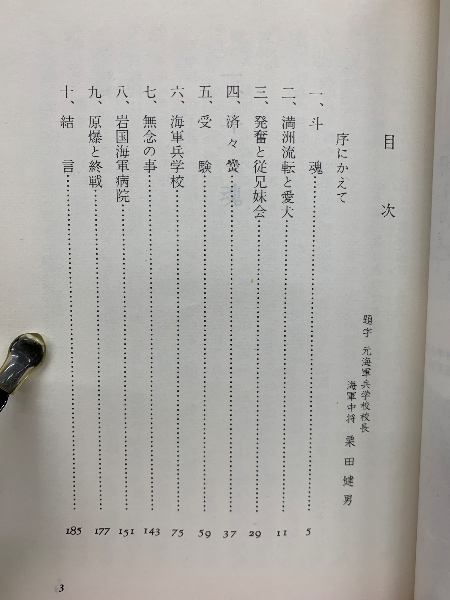 目次
題字 元海軍兵学校校長
海軍中将 栗田健男
序にかえて
一、斗魂 5
二、満洲流転と愛犬 11
三、発奮と従兄妹会 29
四、済々黌 37
五、受験 59
六、海軍兵学校 75
七、無念の事 143
八、岩国海軍病院 151
九、原爆と終戦 177
十、結言 185
3